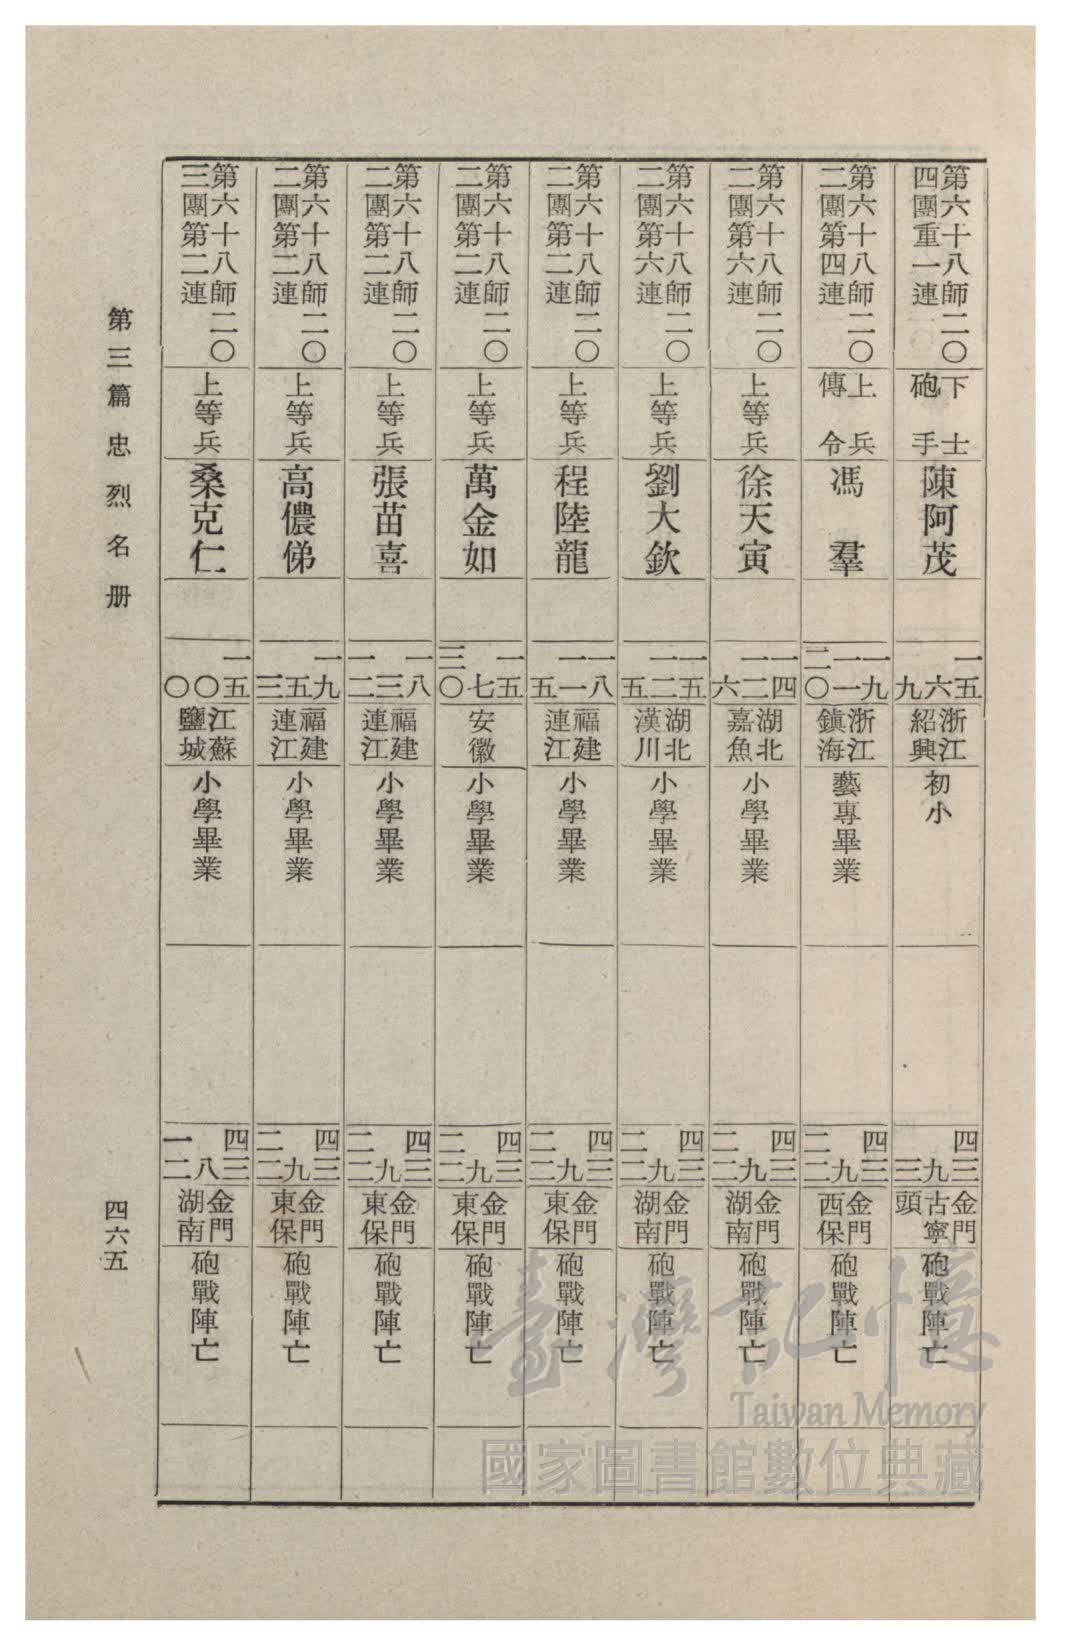 第六十八師二〇
四團重一連
下士
砲手
陳阿茂
一五
六
九
浙江
紹興
初小
四三
九
三
金門
古寧
頭
砲戰陣亡
第六十八師二〇
二團第四連
上兵
傳令
馮羣
一九
一一
二〇
浙江
鎭海
藝專畢業
四三
九
二二
金門
西保
砲戰陣亡
第六十八師二〇
二團第六連
上等兵
徐天寅
一四
一二
六
湖北
嘉魚
小學畢業
四三
九
二二
金門
湖南
砲戰陣亡
第六十八師二〇
二團第六連
上等兵
劉大欽
一五
一二
五
湖北
漢川
小學畢業
四三
九
二二
金門
湖南
砲戰陣亡
第六十八師二〇
二團第二連
上等兵
程陸龍
一八
一一
五
福建
連江
小學畢業
四三
九
二二
金門
東保
砲戰陣亡
第六十八師二〇
二團第二連
上等兵
萬金如
一五
七
三〇
安徽
小學畢業
四三
九
二二
金門
東保
砲戰陣亡
第六十八師二〇
二團第二連
上等兵
張苗喜
一八
三
一二
福建
連江
小學畢業
四三
九
二二
金門
東保
砲戰陣亡
第六十八師二〇
二團第二連
上等兵
高儂俤
一九
五
三
福建
連江
小學畢業
四三
九
二二
金門
東保
砲戰陣亡
第六十八師二〇
三團第二連
上等兵
桑克仁
一五
〇
〇
江蘇
鹽城
小學畢業
四三
八
一二
金門
湖南
砲戰陣亡
第三篇 忠烈名册
四六五
臺灣記憶
Taiwan Memory
國家圖書館數位典藏